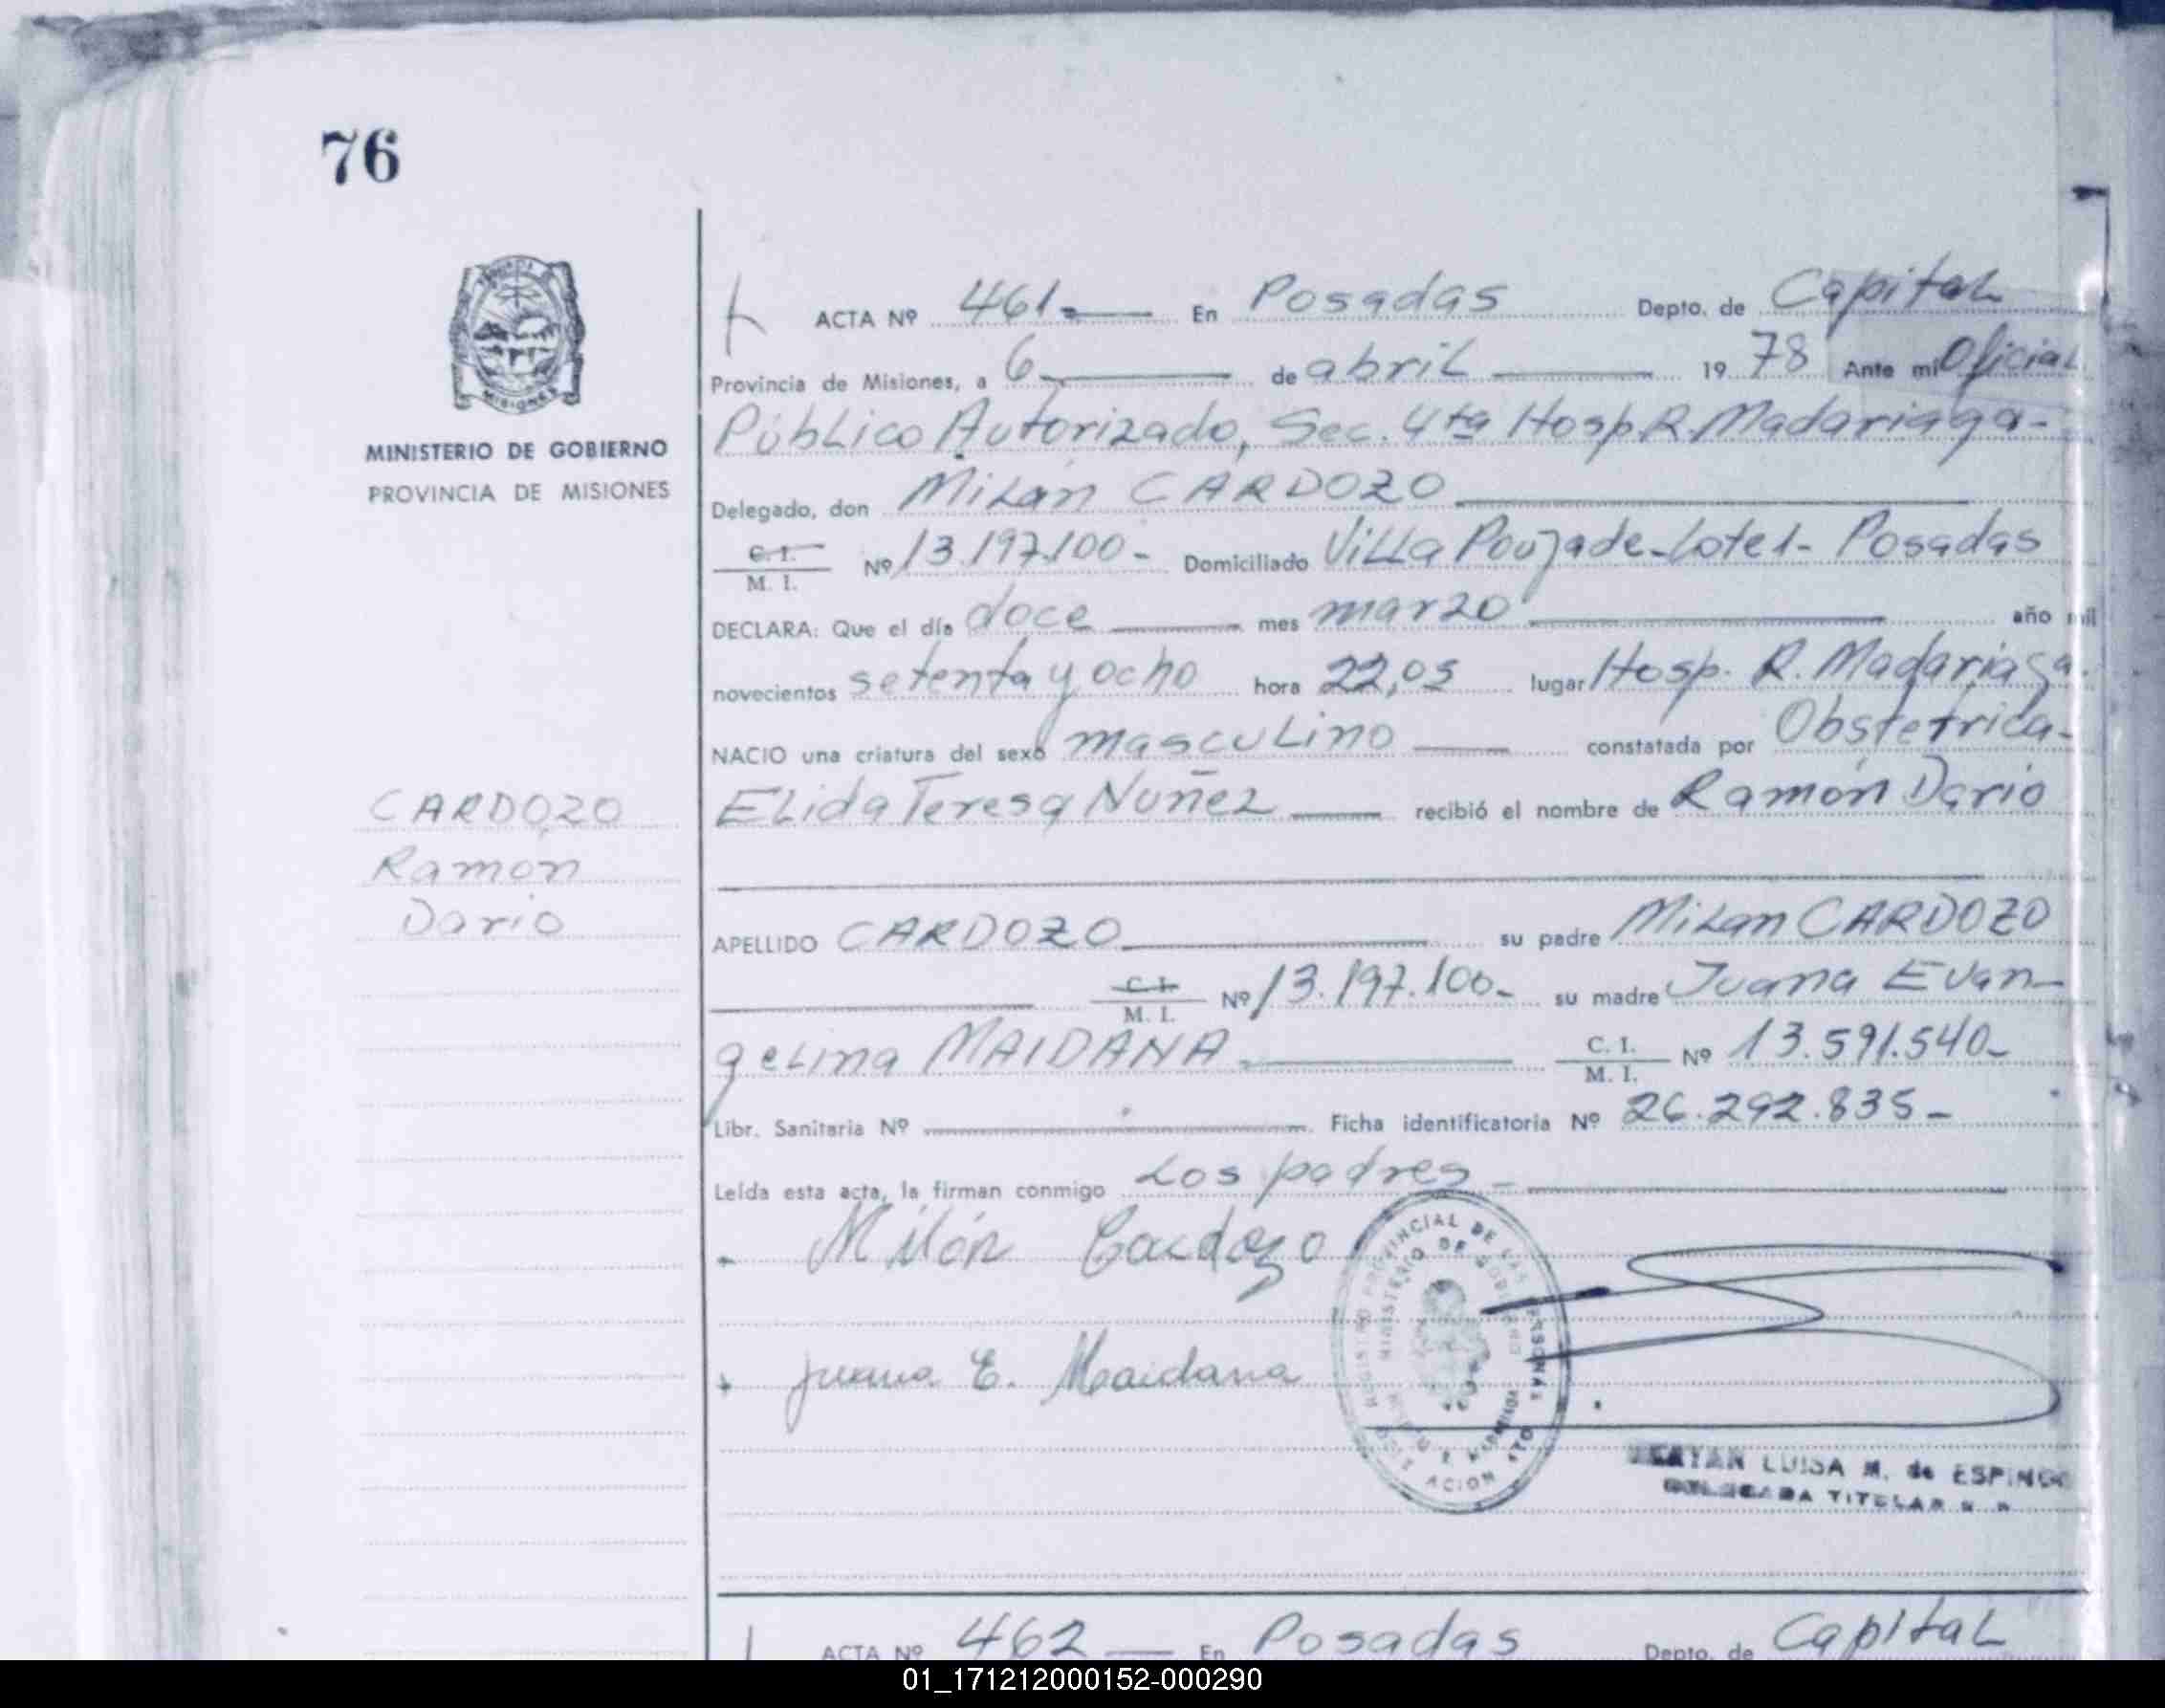 76
MINISTERIO DE GOBIERNO
PROVINCIA DE MISIONES
CARDOZO
Ramon
Dario
ACTA Nº 461 En Posadas Depto. de Capital
Provincia de Misiones, a 6 de abril 1978 Ante mi Oficial
Público Autorizado, Sec. 4ta Hosp. R. Madariaga-
Delegado, don Milán CARDOZO
C. I.
M. I. Nº 13.197.100- Domiciliado Villa Poujade-Lote 1- Posadas
DECLARA: Que el día doce mes marzo año mil
novecientos setenta y ocho hora 22,05 lugar Hosp. R. Madariaga.
NACIO una criatura del sexo masculino constatada por Obstetrica-
Elida Teresa Nuñez recibió el nombre de Ramón Dario
APELLIDO CARDOZO su padre Milan CARDOZO
C. I.
M. I. Nº 13.197.100- su madre Juana Evan-
gelina MAIDANA C. I.
M. I. Nº 13.591.540-
Libr. Sanitaria Nº Ficha identificatoria Nº 26.292.835-
Leída esta acta, la firman conmigo Los padres-
Milán Cardozo
Juana E. Maidana
REGISTRO PROVINCIAL DE LAS PERSONAS
MINISTERIO DE GOBIERNO
LUISA M. de ESPINO
TITULAR
ACTA Nº 462 En Posadas Depto. de Capital
01_171212000152-000290